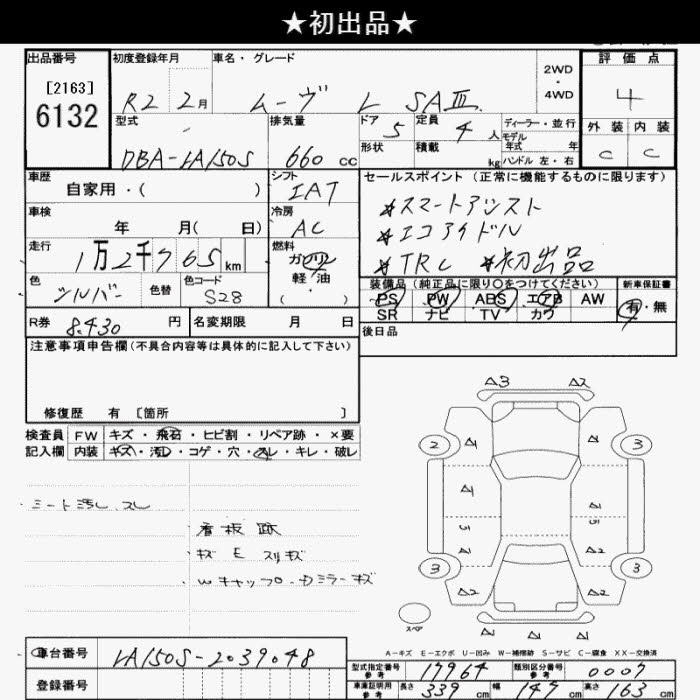 ★初出品★
出品番号
[2163]
6132
初度登録年月
R2 2月
車名・グレード
ムーヴ L SAⅢ
2WD
・
4WD
評価点
4
型式
DBA-LA150S
排気量
660 cc
ドア 5
形状
定員 4 人
積載 kg
ディーラー・並行
モデル
年式 年
ハンドル 左・右
外装 内装
C C
車歴
自家用・( )
シフト
IAT
車検
年 月( 日)
冷房
AC
走行
1万2千765km
燃料
ガソリン
軽・油
・
( )
色
シルバー
色替
色コード
S28
セールスポイント(正常に機能するものに限ります)
★スマートアシスト
★エコアイドル
★TRC ★初出品
装備品(純正品に限り〇をつけてください)
PS PW ABS エアB AW
SR ナビ TV カワ
新車保証書
有・無
R券 8.430 円
名変期限 月 日
後日品
注意事項申告欄(不具合内容等は具体的に記入して下さい)
修復歴 有 [箇所 ]
検査員 FW キズ・飛石・ヒビ割・リペア跡・×要
記入欄 内装 キズ・汚レ・コゲ・穴・スレ・キレ・破レ
シート汚レ スレ
看板跡
キズ E スリキズ
Wキャップ・ドミラーキズ
A3 A2
2 A1 A1 3
A1
S S
A1
A2
3 3
A2 A2
A1 A1 A1
スペア
A-キズ E-エクボ U-凹み W-補修跡 S-サビ C-腐食 XX-交換済
車台番号 LA150S-2039048
登録番号
型式指定番号 参考 19964
類別区分番号 参考 0007
車庫証明用 参考 長さ 339 cm 幅 147 cm 高さ 163 cm